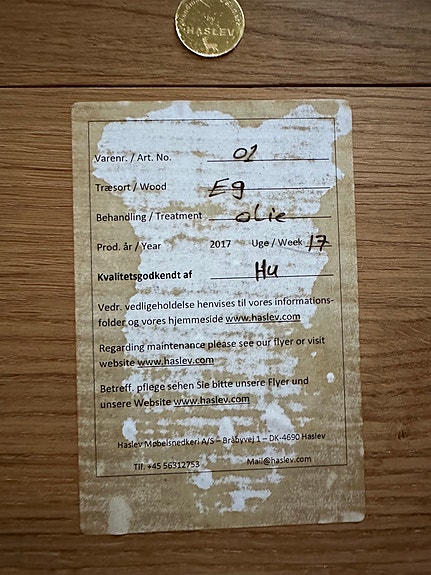 by
HASLEV
Varenr. / Art. No. 01
Træsort / Wood Eg
Behandling / Treatment olie
Prod. år / Year 2017 Uge / Week 17
Kvalitetsgodkendt af Hu
Vedr. vedligeholdelse henvises til vores informations-
folder og vores hjemmeside www.haslev.com
Regarding maintenance please see our flyer or visit
website www.haslev.com
Betreff. pflege sehen Sie bitte unsere Flyer und
unsere Website www.haslev.com
Haslev Møbelsnedkeri A/S – Bråbyvej 1 – DK-4690 Haslev
Tlf. +45 56312753 Mail@haslev.com